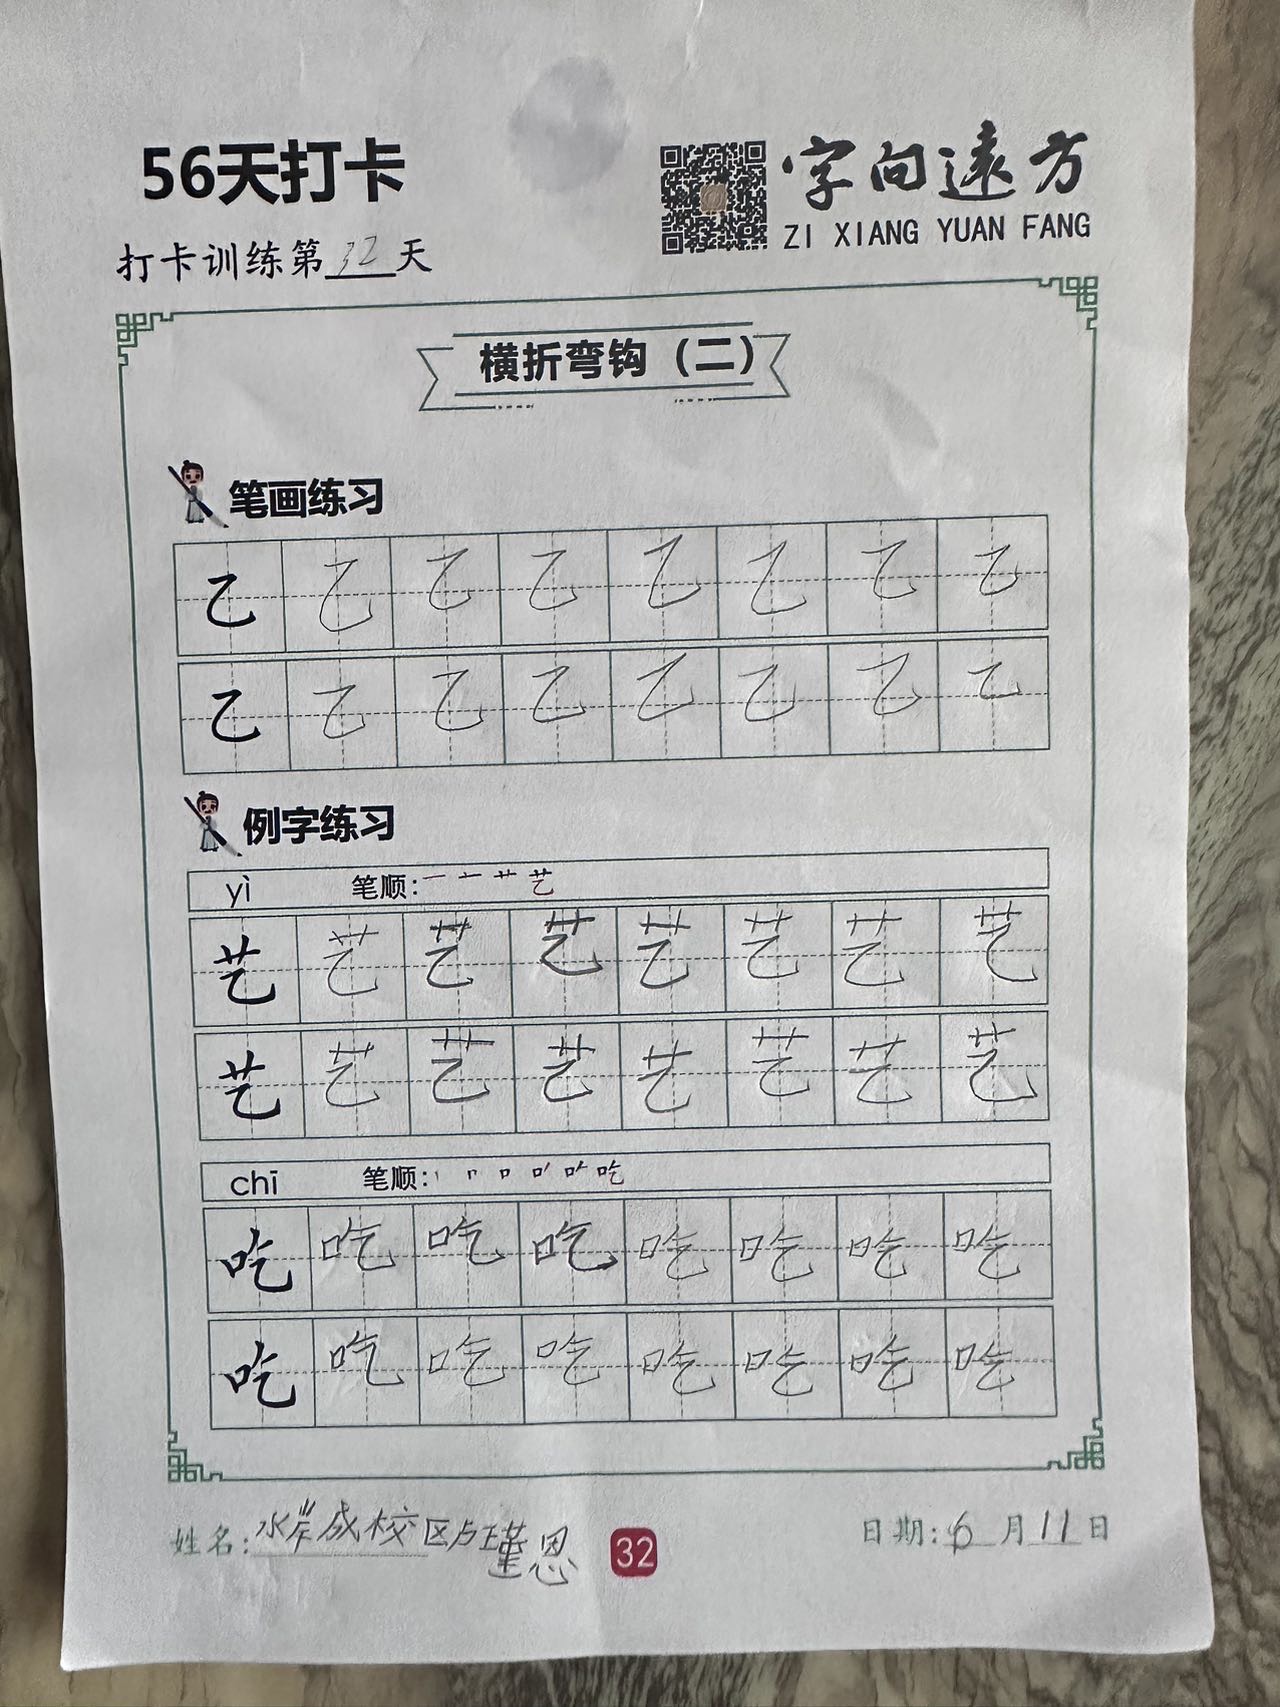 56天打卡
字向远方
ZI XIANG YUAN FANG
打卡训练第32天
横折弯钩（二）
笔画练习
乙 乙 乙 乙 乙 乙 乙 乙
乙 乙 乙 乙 乙 乙 乙 乙
例字练习
yì 笔顺: 一 十 艹 艺
艺 艺 艺 艺 艺 艺 艺 艺
艺 艺 艺 艺 艺 艺 艺 艺
chī 笔顺: 丨 冂 口 吖 吃 吃
吃 吃 吃 吃 吃 吃 吃 吃
吃 吃 吃 吃 吃 吃 吃 吃
姓名: 水岸成校区卢瑾恩
32
日期: 6月11日